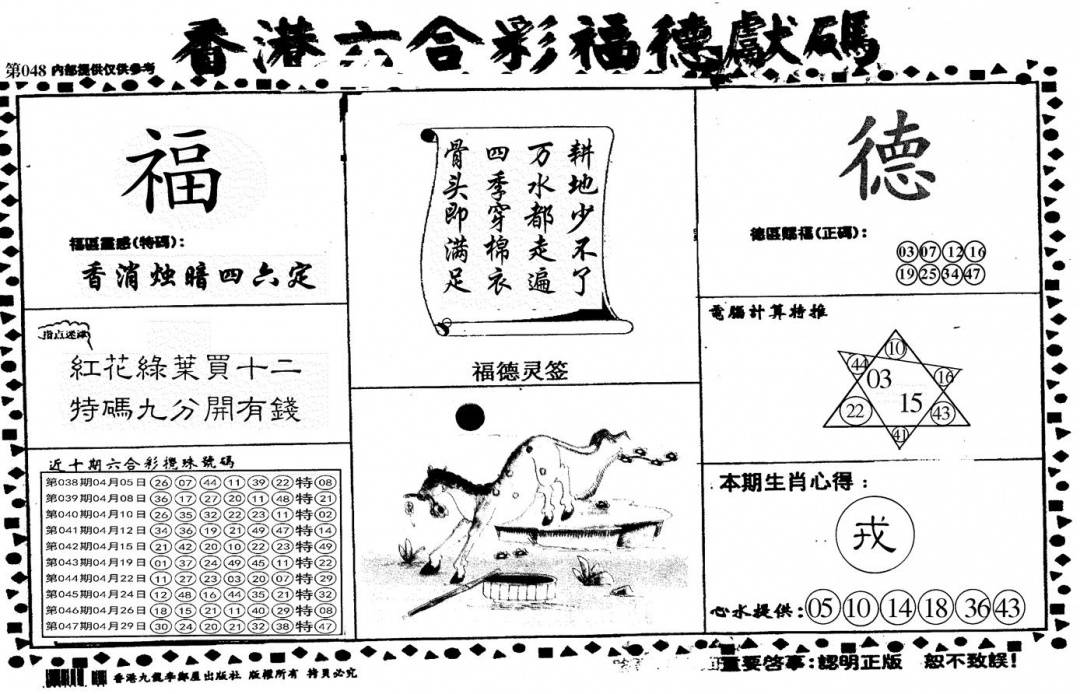 香港六合彩福德獻碼
第048 内部提供仅供参考
福
福區靈感(特碼):
香消烛暗四六定
指点迷津
紅花綠葉買十二
特碼九分開有錢
近十期六合彩攪珠號碼
第038期04月05日 26 07 44 11 39 22 特 08
第039期04月08日 36 17 27 20 11 48 特 21
第040期04月10日 26 35 32 22 23 11 特 02
第041期04月12日 34 36 19 21 49 47 特 14
第042期04月15日 21 42 20 10 22 23 特 49
第043期04月19日 01 37 24 49 45 11 特 22
第044期04月22日 11 27 23 03 20 07 特 29
第045期04月24日 12 48 16 44 35 21 特 32
第046期04月26日 18 15 21 11 40 29 特 08
第047期04月29日 30 24 20 21 32 38 特 47
耕地少不了
万水都走遍
四季穿棉衣
骨头即满足
福德灵签
德
德區賜福(正碼):
03 07 12 16
19 25 34 47
電腦計算特推
10
44 03 16
22 15 43
41
本期生肖心得:
戎
心水提供:05 10 14 18 36 43
香港九龍李鄭屋出版社 版權所有 拷貝必究
重要啓事:認明正版 恕不致誤!